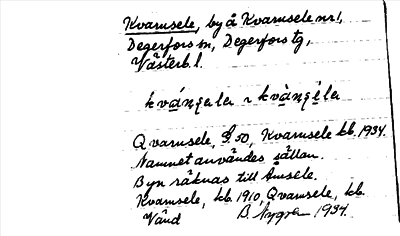 Kvarnsele, by å Kvarnsele nr 1,
Degerfors sn, Degerfors tg,
Västerb. l.
Qvarnsele, S. 50, Kvarnsele kb. 1934.
Namnet användes sällan.
Byn räknas till Åmsele.
Kvarnsele, kb. 1910, Qvarnsele, kb.
B. Nygren 1934.